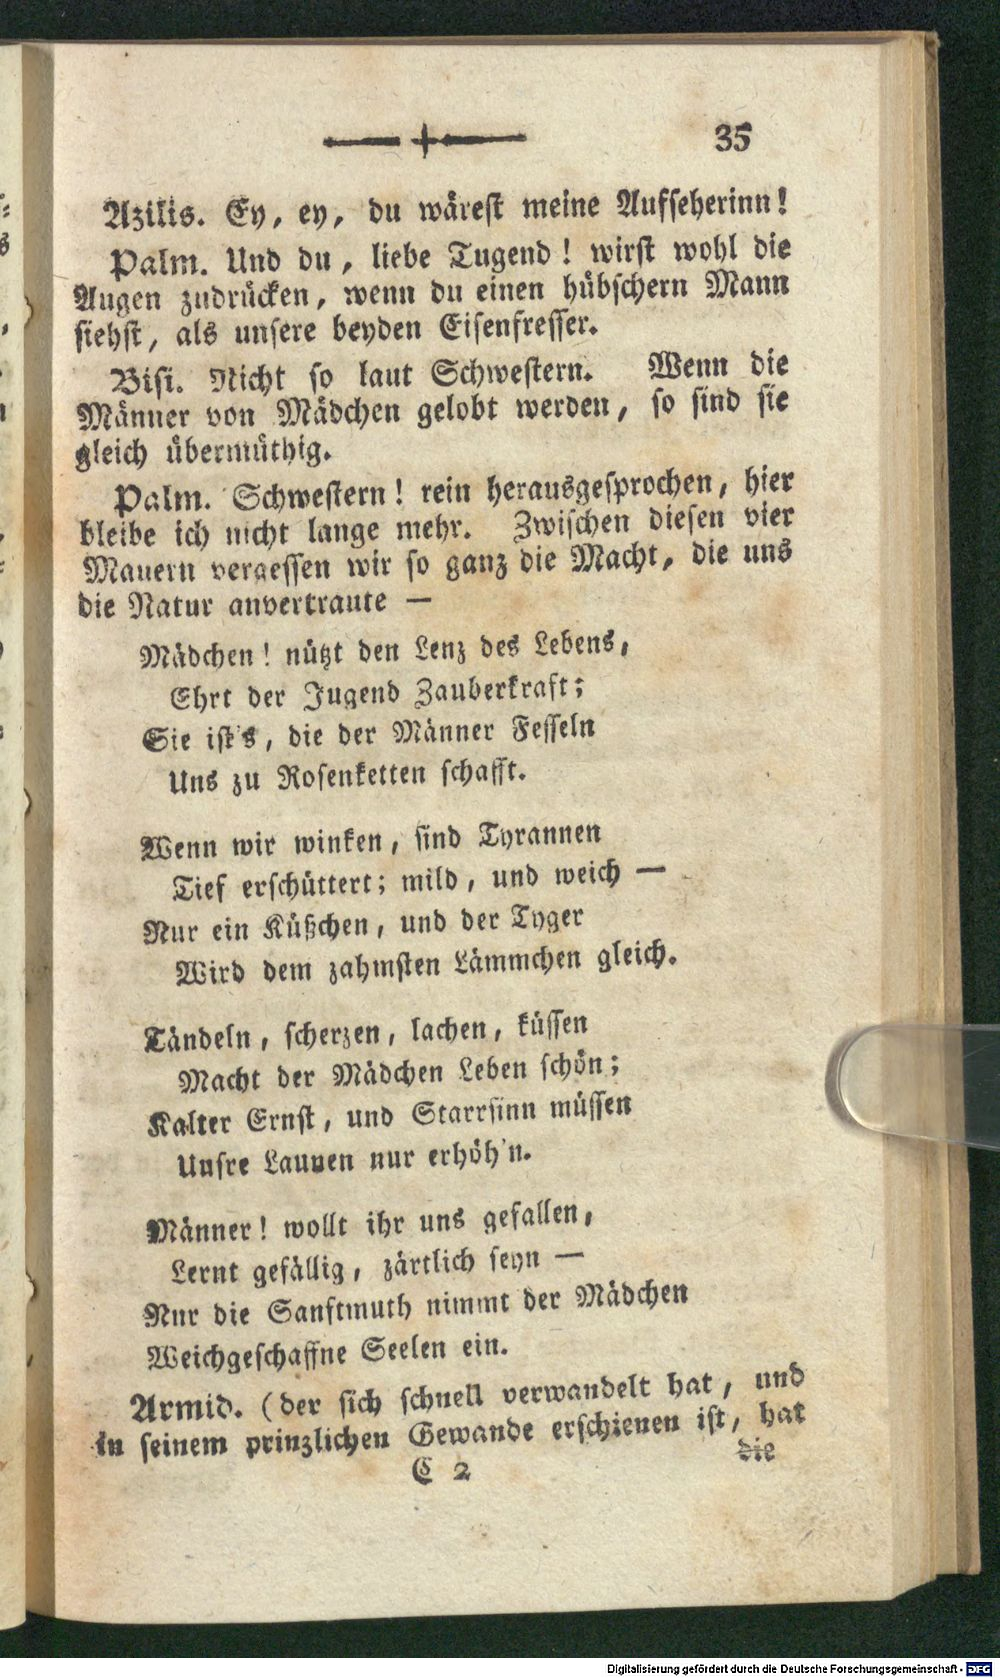 35
Azilis. Ey, ey, du wärest meine Aufseherinn!
Palm. Und du, liebe Tugend! wirst wohl die
Augen zudrücken, wenn du einen hübschern Mann
siehst, als unsere beyden Eisenfresser.
Bisi. Nicht so laut Schwestern. Wenn die
Männer von Mädchen gelobt werden, so sind sie
gleich übermüthig.
Palm. Schwestern! rein herausgesprochen, hier
bleibe ich nicht lange mehr. Zwischen diesen vier
Mauern vergessen wir so ganz die Macht, die uns
die Natur anvertraute —
Mädchen! nützt den Lenz des Lebens,
Ehrt der Jugend Zauberkraft;
Sie ist's, die der Männer Fesseln
Uns zu Rosenketten schafft.
Wenn wir winken, sind Tyrannen
Tief erschüttert; mild, und weich —
Nur ein Küßchen, und der Tyger
Wird dem zahmsten Lämmchen gleich.
Tändeln, scherzen, lachen, küssen
Macht der Mädchen Leben schön;
Kalter Ernst, und Starrsinn müssen
Unsre Launen nur erhöh'n.
Männer! wollt ihr uns gefallen,
Lernt gefällig, zärtlich seyn —
Nur die Sanftmuth nimmt der Mädchen
Weichgeschaffne Seelen ein.
Armid. (der sich schnell verwandelt hat, und
in seinem prinzlichen Gewande erschienen ist, hat
C 2 die
Digitalisierung gefördert durch die Deutsche Forschungsgemeinschaft - DFG